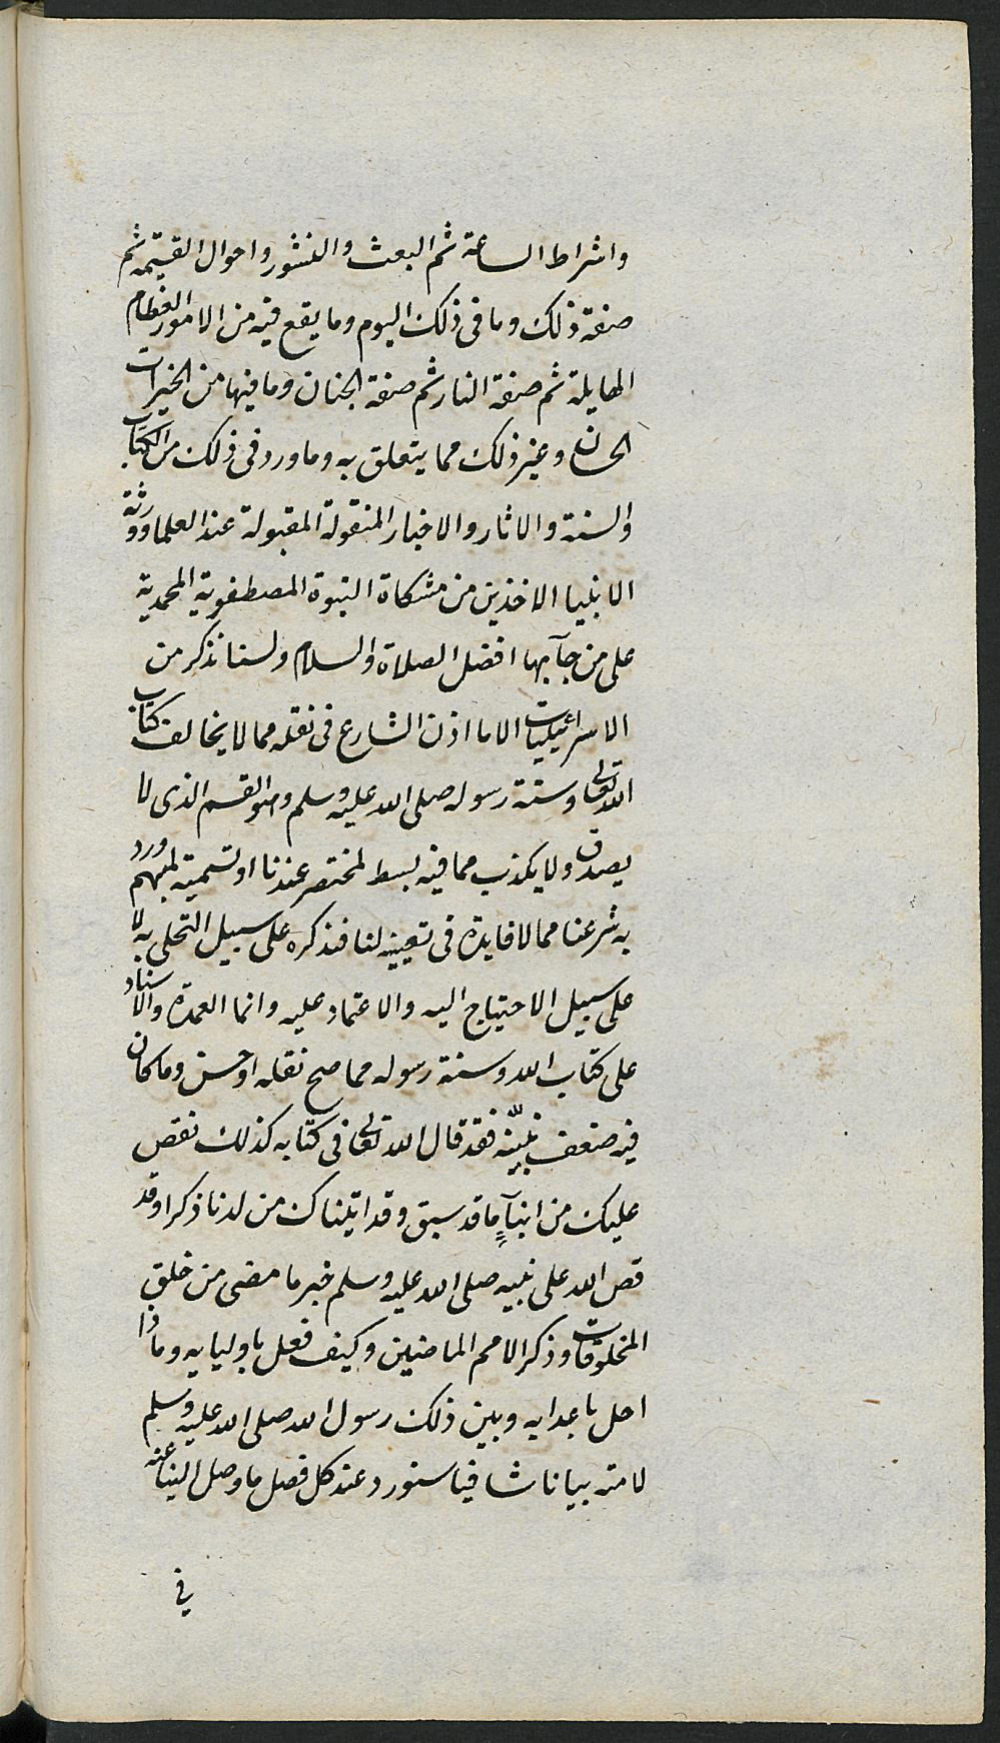 واشراط الساعة ثم البعث والنشور واحوال القيمة ثم
صفة ذلك وما فى ذلك اليوم وما يقع فيه من الامور العظام
الهايلة ثم صفة النار ثم صفة الجنان وما فيها من الخيرات
الحسان وغير ذلك مما يتعلق به وما ورد فى ذلك من الكتاب
والسنة والاثار والاخبار المنقولة المقبولة عند العلما وورثة
الانبيا الاخذين من مشكاة النبوة المصطفوية المحمدية
على من جآ بها افضل الصلاة والسلام ولسنا نذكر من
الاسرائيليات الا ما اذن الشارع فى نقله مما لا يخالف كتاب
الله تعالى وسنة رسوله صلى الله عليه وسلم وهو القسم الذى لا
يصدق ولا يكذب مما فيه بسط لمختصر عندنا او تسمية لمبهم ورد
به شرعنا مما لا فايدة فى تعيينه لنا فنذكره على سبيل التحلى به لا
على سبيل الاحتياج اليه والاعتماد عليه وانما العمدة والاسناد
على كتاب الله وسنة رسوله مما صح نقله او حسن وما كان
فيه ضعف نبيّنه فقد قال الله تعالى فى كتابه كذلك نقص
عليك من انبآءِ ما قد سبق وقد اتيناك من لدنا ذكرا وقد
قص الله على نبيه صلى الله عليه وسلم خبر ما مضى من خلق
المخلوقات وذكر الامم الماضين وكيف فعل باوليايه وماذا
احل باعدايه وبين ذلك رسول الله صلى الله عليه وسلم
لامته بيانا شافيا سنورد عند كل فصل ما وصل الينا عنه
فى